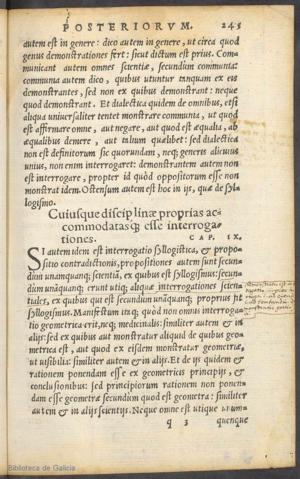 POSTERIORVM. 245
autem est in genere: dico autem in genere, ut circa quod
genus demonstrationes fert: sicut dictum est prius. Com
municant autem omnes scientiæ, secundum communia:
communia autem dico, quibus utuntur tanquam ex eis
demonstrantes, sed non ex quibus demonstrant: neque
quod demonstrant. Et dialectica quidem de omnibus, etsi
aliqua uniuersaliter tentet monstrare communia, ut quod
est affirmare omne, aut negare, aut quod est æqualia, ab
æqualibus demere, aut talium qualibet: sed dialectica
non est definitorum sic quorundam, neq; generis alicuius
unius, non enim interrogaret: demonstrantem autem non
est interrogare, propter id quòd oppositorum esse non
monstrat idem. Ostensum autem est hoc in ijs, quæ de syl
logismo.
Cuiusque disciplinæ proprias ac-
commodatasq; esse interroga-
tiones. CAP. IX.
SI autem idem est interrogatio syllogistica, & propo-
sitio contradictionis, propositiones autem sunt secun-
dum unamquanq; scientiã, ex quibus est syllogismus: secun
dum unãquanq; erunt utiq; aliquæ interrogationes scien-
tiales, ex quibus qui est secundum unãquanq; proprius fit
syllogismus. Manifestum itaq; quòd non omnis interroga
tio geometrica erit, neq; medicinalis: similiter autem & in
alijs: sed ex quibus aut monstratur aliquid de quibus geo-
metrica est, aut quod ex eisdem monstratur geometriæ,
ut uisibilia: similiter autem & in alijs. Et de ijs quidem &
rationem ponendam esse ex geometricis principijs, &
conclusionibus: sed principiorum rationem non ponen-
dam esse geometræ secundum quod est geometra: similiter
autem & in alijs scientijs. Neque omne est utique unum-
q 3 quenque
Biblioteca de Galicia